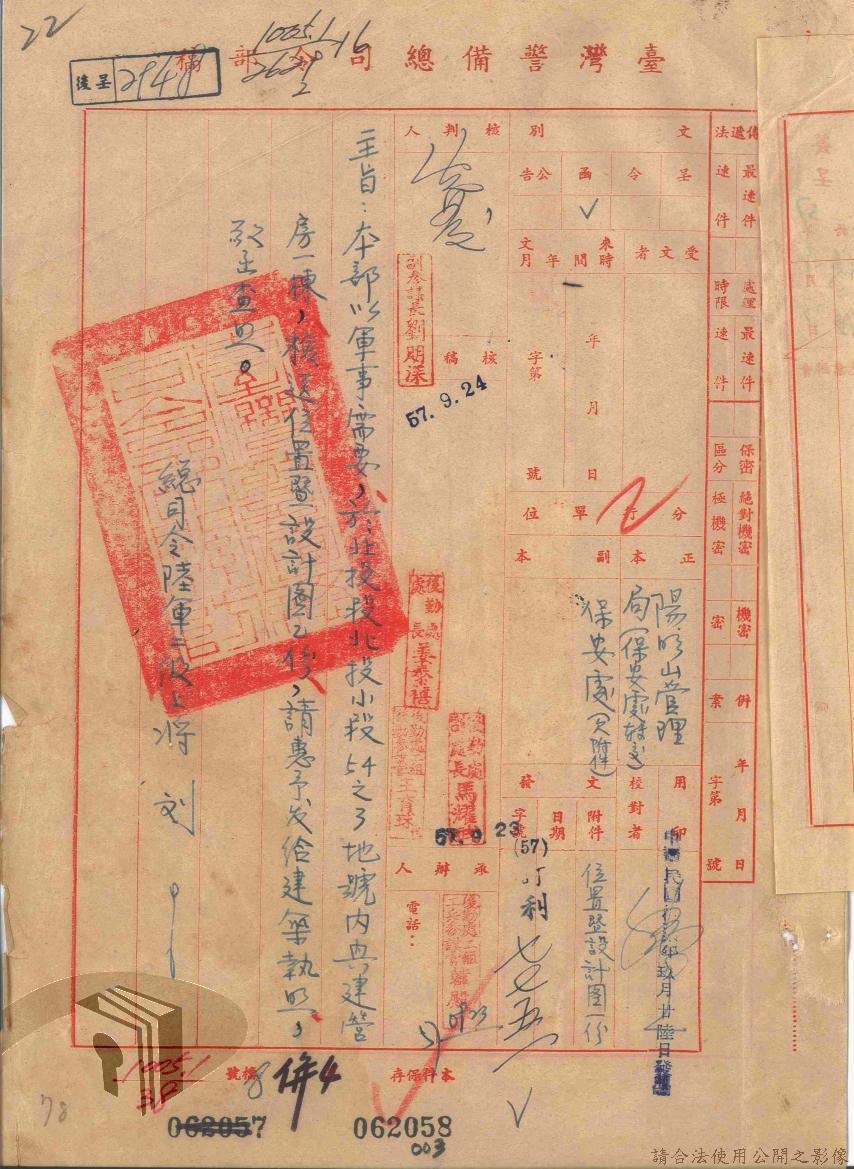 22
1005.1
26292
16
後呈 2948
臺灣警備總司令部稿
傳遞法 最速件 速件
處理時限 最速件 速件
保密區分 絕對機密 極機密 機密 密
併案 年 月 日 字第 號
文別 呈 令 函 公告
✓
受文者
來文時間 年 月
年 月 日
字第 號
分行單位
正本 副本
陽明山管理
局(保安處轉交)
保安處(含附件)
用印
校對者
中華民國年玖月廿陸日發
發文 附件 日期 字號
位置暨設計圖一份
(57)
利七七五一
核判人
核稿
副參謀長劉明深
57.9.24
後勤處處長
後勤處副處長馬
57.9.23
承辦人
電話：
9/23
主旨：本部以軍事需要，於北投段北投小段54之3地號內興建營
房一棟，檢送位置暨設計圖乙份，請惠予发給建築執照，
敬希查照。
總司令陸軍二級上將 刘
本件保存
檔號
1005.1
38
8
併4
062057
062058
003
78
請合法使用公開之影像